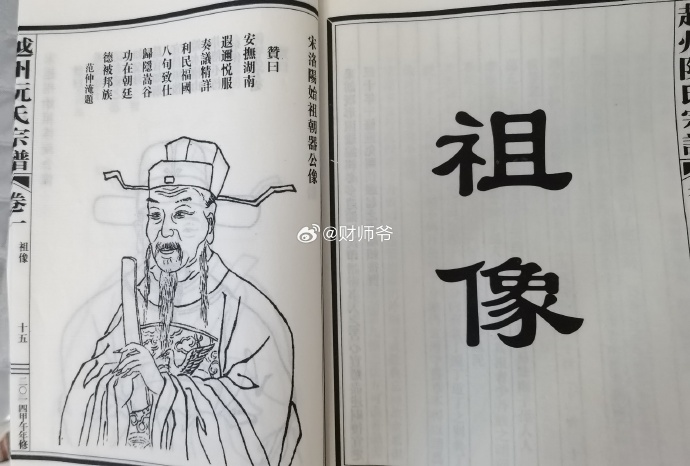 祖像
宋洛陽始祖朝器公像
贊曰
安撫湖南
遐邇悅服
奏議精詳
利民福國
八旬致仕
歸隱嵩谷
功在朝廷
德被邦族
范仲淹題
越州阮氏宗譜
卷一
祖像
十五
二〇一四甲午年修
@财师爷